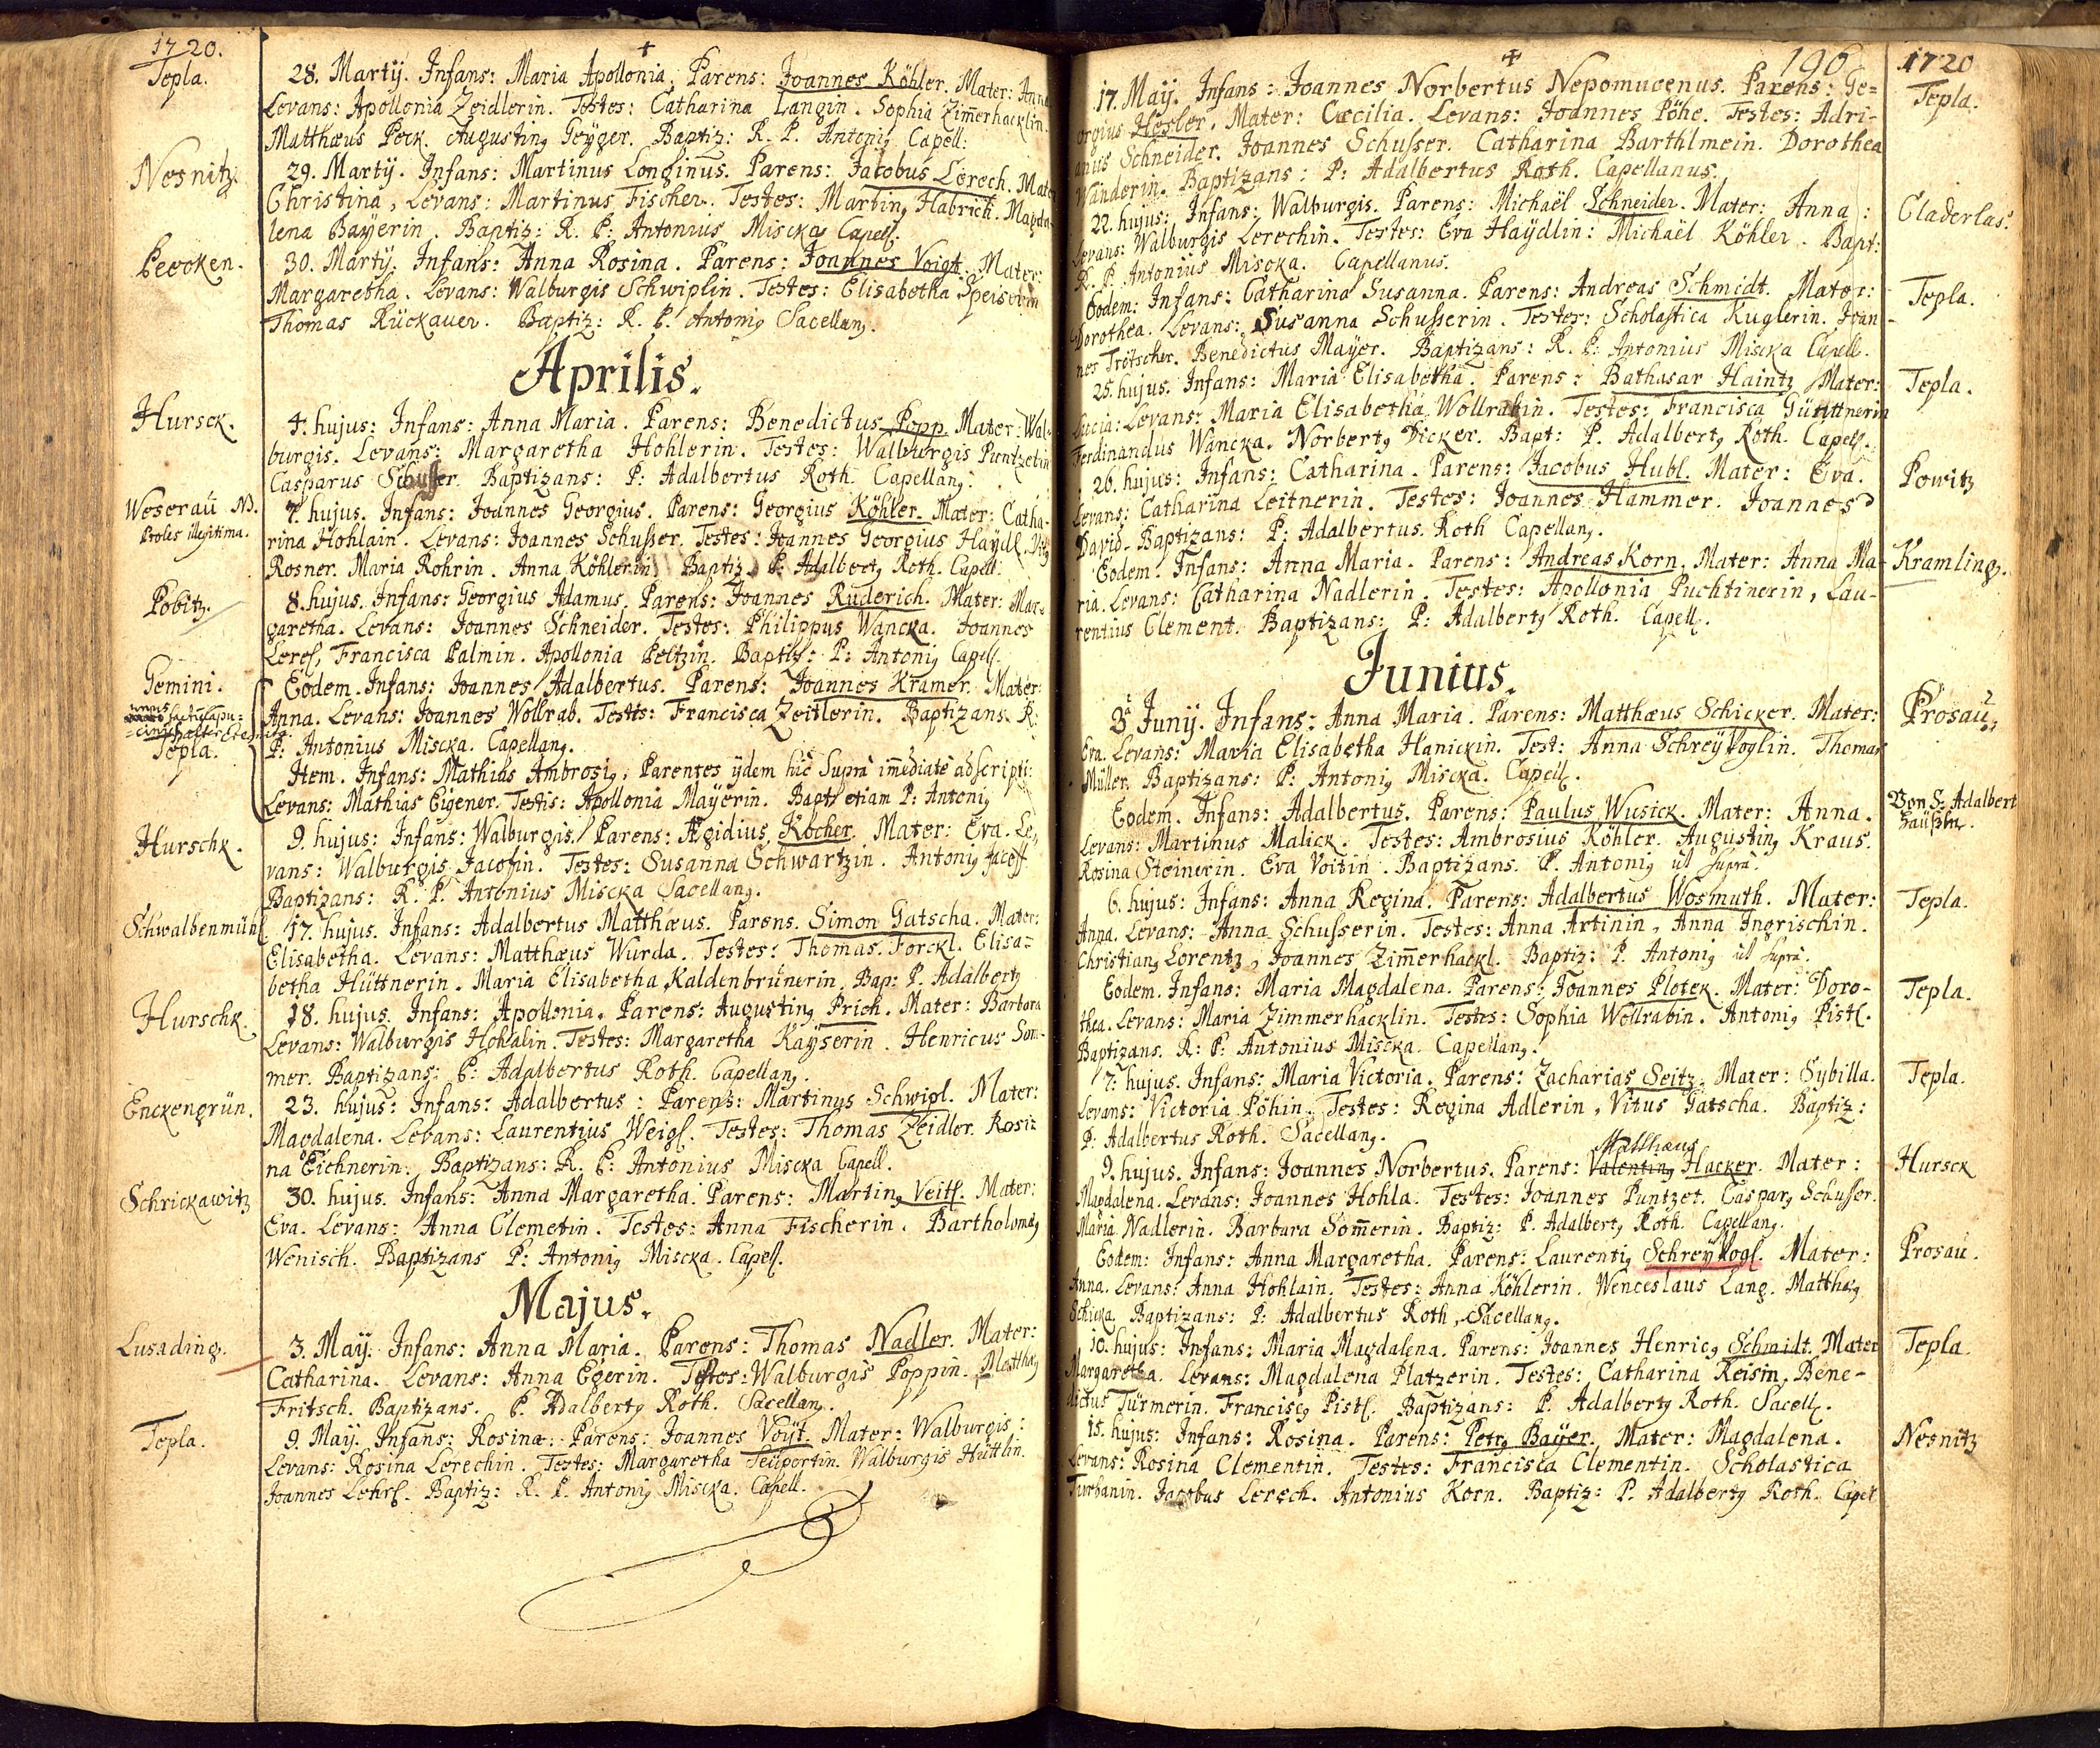 1720.
Tepla.
28. Martÿ. Infans: Maria Apollonia. Parens: Joannes Köhler. Mater: Anna
Levans: Apollonia Zeidlerin. Testes: Catharina Langin. Sophia Zimerhacklin.
Matthæus Peck. Augusting Geÿger. Baptiz: R. P. Antonig Capell:
Nesnitz.
29. Martÿ. Infans: Martinus Longinus. Parens: Jacobus Lerech. Mater
Christina, Levans: Martinus Fischer. Testes: Marting Habrich. Magda-
lena Bayerin. Baptiz: R. P: Antonius Miscka Capell.
Peeoken.
30. Martÿ. Infans: Anna Rosina. Parens: Joannes Voigt. Mater:
Margaretha. Levans: Walburgis Schwiplin. Testes: Elisabetha Speiserin
Thomas Rückauer. Baptiz: R. P. Antonig Sacellang.
Aprilis.
Hursck.
4. hujus: Infans: Anna Maria. Parens: Benedictus Popp. Mater: Wal-
burgis. Levans: Margaretha Hohlerin. Testes: Walburgis Puntzetin
Casparus Schusser. Baptizans: P: Adalbertus Roth. Capellang.
Weseraù NB.
Proles illegitima.
7. hujus. Infans: Joannes Georgius. Parens: Georgius Köhler. Mater: Catha-
rina Hohlain. Levans: Joannes Schusser. Testes: Joannes Georgius Haÿdl. Vitg
Rosner. Maria Rohrin. Anna Köhlerin Baptiz. P. Adalbertg Roth. Capell.
Pobitz.
8. hujus. Infans: Georgius Adamus. Parens: Joannes Ruderich. Mater: Mar-
garetha. Levans: Joannes Schneider. Testes: Philippus Wancka. Joannes
Leres, Francisca Palmin. Apollonia Peltzin. Baptiz: P: Antonig Capell.
Gemini.
Tepla.
Eodem. Infans: Joannes Adalbertus. Parens: Joannes Kramer. Mater:
Anna. Levans: Joannes Wollrab. Testes: Francisca Zeitlerin. Baptizans. R:
P: Antonius Miscka. Capellang.
Item. Infans: Mathias Ambrosig. Parentes ÿdem hic supra imediate adscripti:
Levans: Mathias Eigener. Testis: Apollonia Mayerin. Bapt etiam P: Antonig
Hurschk.
9. hujus: Infans: Walburgis. Parens: Ægidius Kocher. Mater: Eva. Le-
vans: Walburgis Jacosin. Testes: Susanna Schwartzin. Antonig
Baptizans: R. P. Antonius Miscka Sacellang.
Schwalbenmühl
17. hujus. Infans: Adalbertus Matthæus. Parens. Simon Gatscha. Mater:
Elisabetha. Levans: Matthæus Wurda. Testes: Thomas Forckl. Elisa-
betha Hüttnerin. Maria Elisabetha Kaldenbrunerin. Bap: P. Adalbertg
Hurschk.
18. hujus. Infans: Apollonia. Parens: Augusting Prick. Mater: Barbara
Levans: Walburgis Hohlalin. Testes: Margaretha Kaÿserin. Henricus Som-
mer. Baptizans: P: Adalbertus Roth. Capellang.
Enckengrün.
23. hujus: Infans: Adalbertus: Parens: Martinus Schwipl. Mater:
Magdalena. Levans: Laurentius Weigl. Testes: Thomas Zeidler. Rosi-
na Eichnerin. Baptizans: R. P: Antonius Miscka Capell.
Schrickawitz
30. hujus. Infans: Anna Margaretha. Parens: Marting Veitl. Mater:
Eva. Levans: Anna Clemetin. Testes: Anna Fischerin. Bartholomæg
Wenisch. Baptizans P: Antonig Miscka. Capell.
Majus.
Lusading.
3. Maÿ. Infans: Anna Maria. Parens: Thomas Nadler. Mater:
Catharina. Levans: Anna Egerin. Testes: Walburgis Poppin. Matthæg
Fritsch. Baptizans. P. Adalbertg Roth. Sacellang.
Tepla.
9. Maÿ. Infans: Rosina. Parens: Joannes Voÿt. Mater: Walburgis:
Levans: Rosina Lerechin. Testes: Margaretha Seupertin. Walburgis Heutlin.
Joannes Lehrl. Baptiz: R. P. Antonig Miscka. Capell.
196
1720
17. Maÿ. Infans: Joannes Norbertus Nepomucenus. Parens: Ge-
Tepla.
orgius Hösler. Mater: Cæcilia. Levans: Joannes Pöhe. Testes: Adri-
anus Schneider. Joannes Schusser. Catharina Barthlmein. Dorothea
Wanderin. Baptizans: P: Adalbertus Roth. Capellanus.
22. hujus: Infans: Walburgis. Parens: Michaël Schneider. Mater: Anna:
Claderlas.
Levans: Walburgis Lerechin. Testes: Eva Haÿdlin: Michaël Köhler. Bapt:
R. P. Antonius Miscka. Capellanus.
Eodem: Infans: Catharina Susanna. Parens: Andreas Schmidt. Mater:
Tepla.
Dorothea. Levans: Susanna Schusserin. Testes: Scholastica Kuglerin. Joan-
nes Trötscher. Benedictus Maÿer. Baptizans: R. P: Antonius Miscka Capell.
25. hujus. Infans: Maria Elisabetha. Parens: Bathasar Haintz Mater:
Tepla.
Lucia: Levans: Maria Elisabetha Wollrabin. Testes: Francisca Günttnerin
Ferdinandus Wancka. Norbertg Dicker. Bapt: P. Adalbertg Roth. Capell.
26. hujus: Infans: Catharina. Parens: Jacobus Hubl. Mater: Eva.
Powitz
Levans: Catharina Leitnerin. Testes: Joannes Hammer. Joannes
David. Baptizans: P: Adalbertus Roth Capellang.
Eodem. Infans: Anna Maria. Parens: Andreas Korn. Mater: Anna Ma-
Kramling.
ria. Levans: Catharina Nadlerin. Testes: Apollonia Puchtinerin, Lau-
rentius Clement. Baptizans: P: Adalbertg Roth. Capell.
Junius.
3ª Junÿ. Infans: Anna Maria. Parens: Matthæus Schicker. Mater:
Prosaù
Eva. Levans: Maria Elisabetha Hanickin. Test: Anna Schreÿvoglin. Thomas
Müller. Baptizans: P: Antonig Miscka. Capell.
Eodem. Infans: Adalbertus. Parens: Paulus Wusick. Mater: Anna.
Von S: Adalbert
Häußln.
Levans: Martinus Malick. Testes: Ambrosius Köhler. Augusting Kraus.
Rosina Steinerin. Eva Voitin. Baptizans. P. Antonig ut supra.
6. hujus: Infans: Anna Regina. Parens: Adalbertus Wosmuth. Mater:
Tepla.
Anna. Levans: Anna Schusserin. Testes: Anna Artinin, Anna Ingrischin.
Christiang Lorentz, Joannes Zimerhackl. Baptiz: P. Antonig ut supra.
Eodem. Infans: Maria Magdalena. Parens: Joannes Plotek. Mater: Doro-
Tepla.
thea. Levans: Maria Zimmerhacklin. Testes: Sophia Wollrabin. Antonig Pistl.
Baptizans. R: P: Antonius Miscka. Capellang.
7: hujus. Infans: Maria Victoria. Parens: Zacharias Seitz. Mater: Sybilla.
Tepla.
Levans: Victoria Pöhin. Testes: Regina Adlerin, Vitus Gatscha. Baptiz:
P: Adalbertus Roth. Sacellang.
Matthæus
9. hujus. Infans: Joannes Norbertus. Parens: Valenting Hacker. Mater:
Hursck
Magdalena. Levans: Joannes Hohla. Testes: Joannes Puntzet. Casparg Schusser.
Maria Nadlerin. Barbara Somerin. Baptiz: P. Adalbertg Roth. Capellang.
Eodem: Infans: Anna Margaretha. Parens: Laurentig Schreÿvogl. Mater:
Prosaù.
Anna. Levans: Anna Hohlain. Testes: Anna Köhlerin. Wenceslaus Lang. Matthæg
Schicka. Baptizans: P: Adalbertus Roth, Sacellang.
10. hujus: Infans: Maria Magdalena. Parens: Joannes Henricg Schmidt. Mater
Tepla.
Margaretha. Levans: Magdalena Platzerin. Testes: Catharina Keisin, Bene-
dictus Türmerin. Franciscg Pistl. Baptizans: P. Adalbertg Roth. Sacell.
15. hujus: Infans: Rosina. Parens: Petrg Baÿer. Mater: Magdalena.
Nesnitz
Levans: Rosina Clementin. Testes: Francisca Clementin. Scholastica
Turbanin. Jacobus Lerech. Antonius Korn. Baptiz: P. Adalbertg Roth. Capel